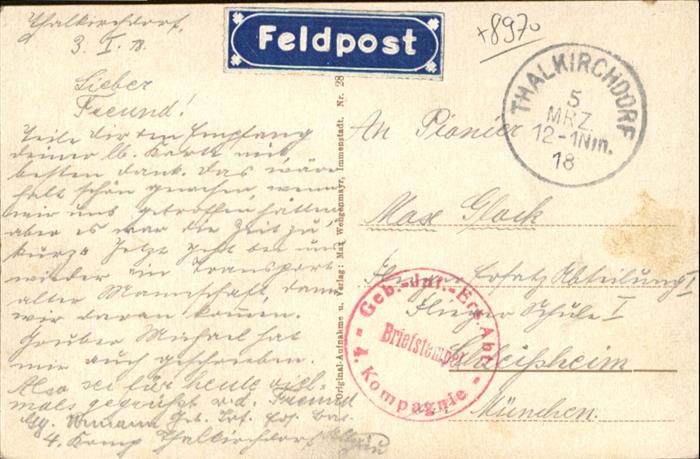 Thalkirchdorf,
3. I. 18.
Feldpost
+8970
THALKIRCHDORF
5
MRZ.
12-1Nm.
18
Lieber
Freund!
Teile dir den Empfang
deiner lb. Karte mit,
besten dank. Das wäre
halt schön gewesen, wenn
wir uns getroffen hätten
aber es war die Zeit zu
kurz. Jetzt geht bei uns
wieder ein Transport
alter Mannschaft, dann
wir daran kommen.
Gruber Michael hat
mir auch geschrieben.
Also sei für heute viel-
mals gegrüßt v. d. Freund
Geb. Inf.
4. Komp Thalkirchdorf Allgäu
Original-Aufnahme u. Verlag: Max Wengenmayr, Immenstadt. Nr. 28
An Pionier
Max Glock
Flieger Ersatz Abteilung I
Flieger Schule I
Schleißheim
München
Geb.-Inf.-Ers.Abt.
Briefstempel
4. Kompagnie